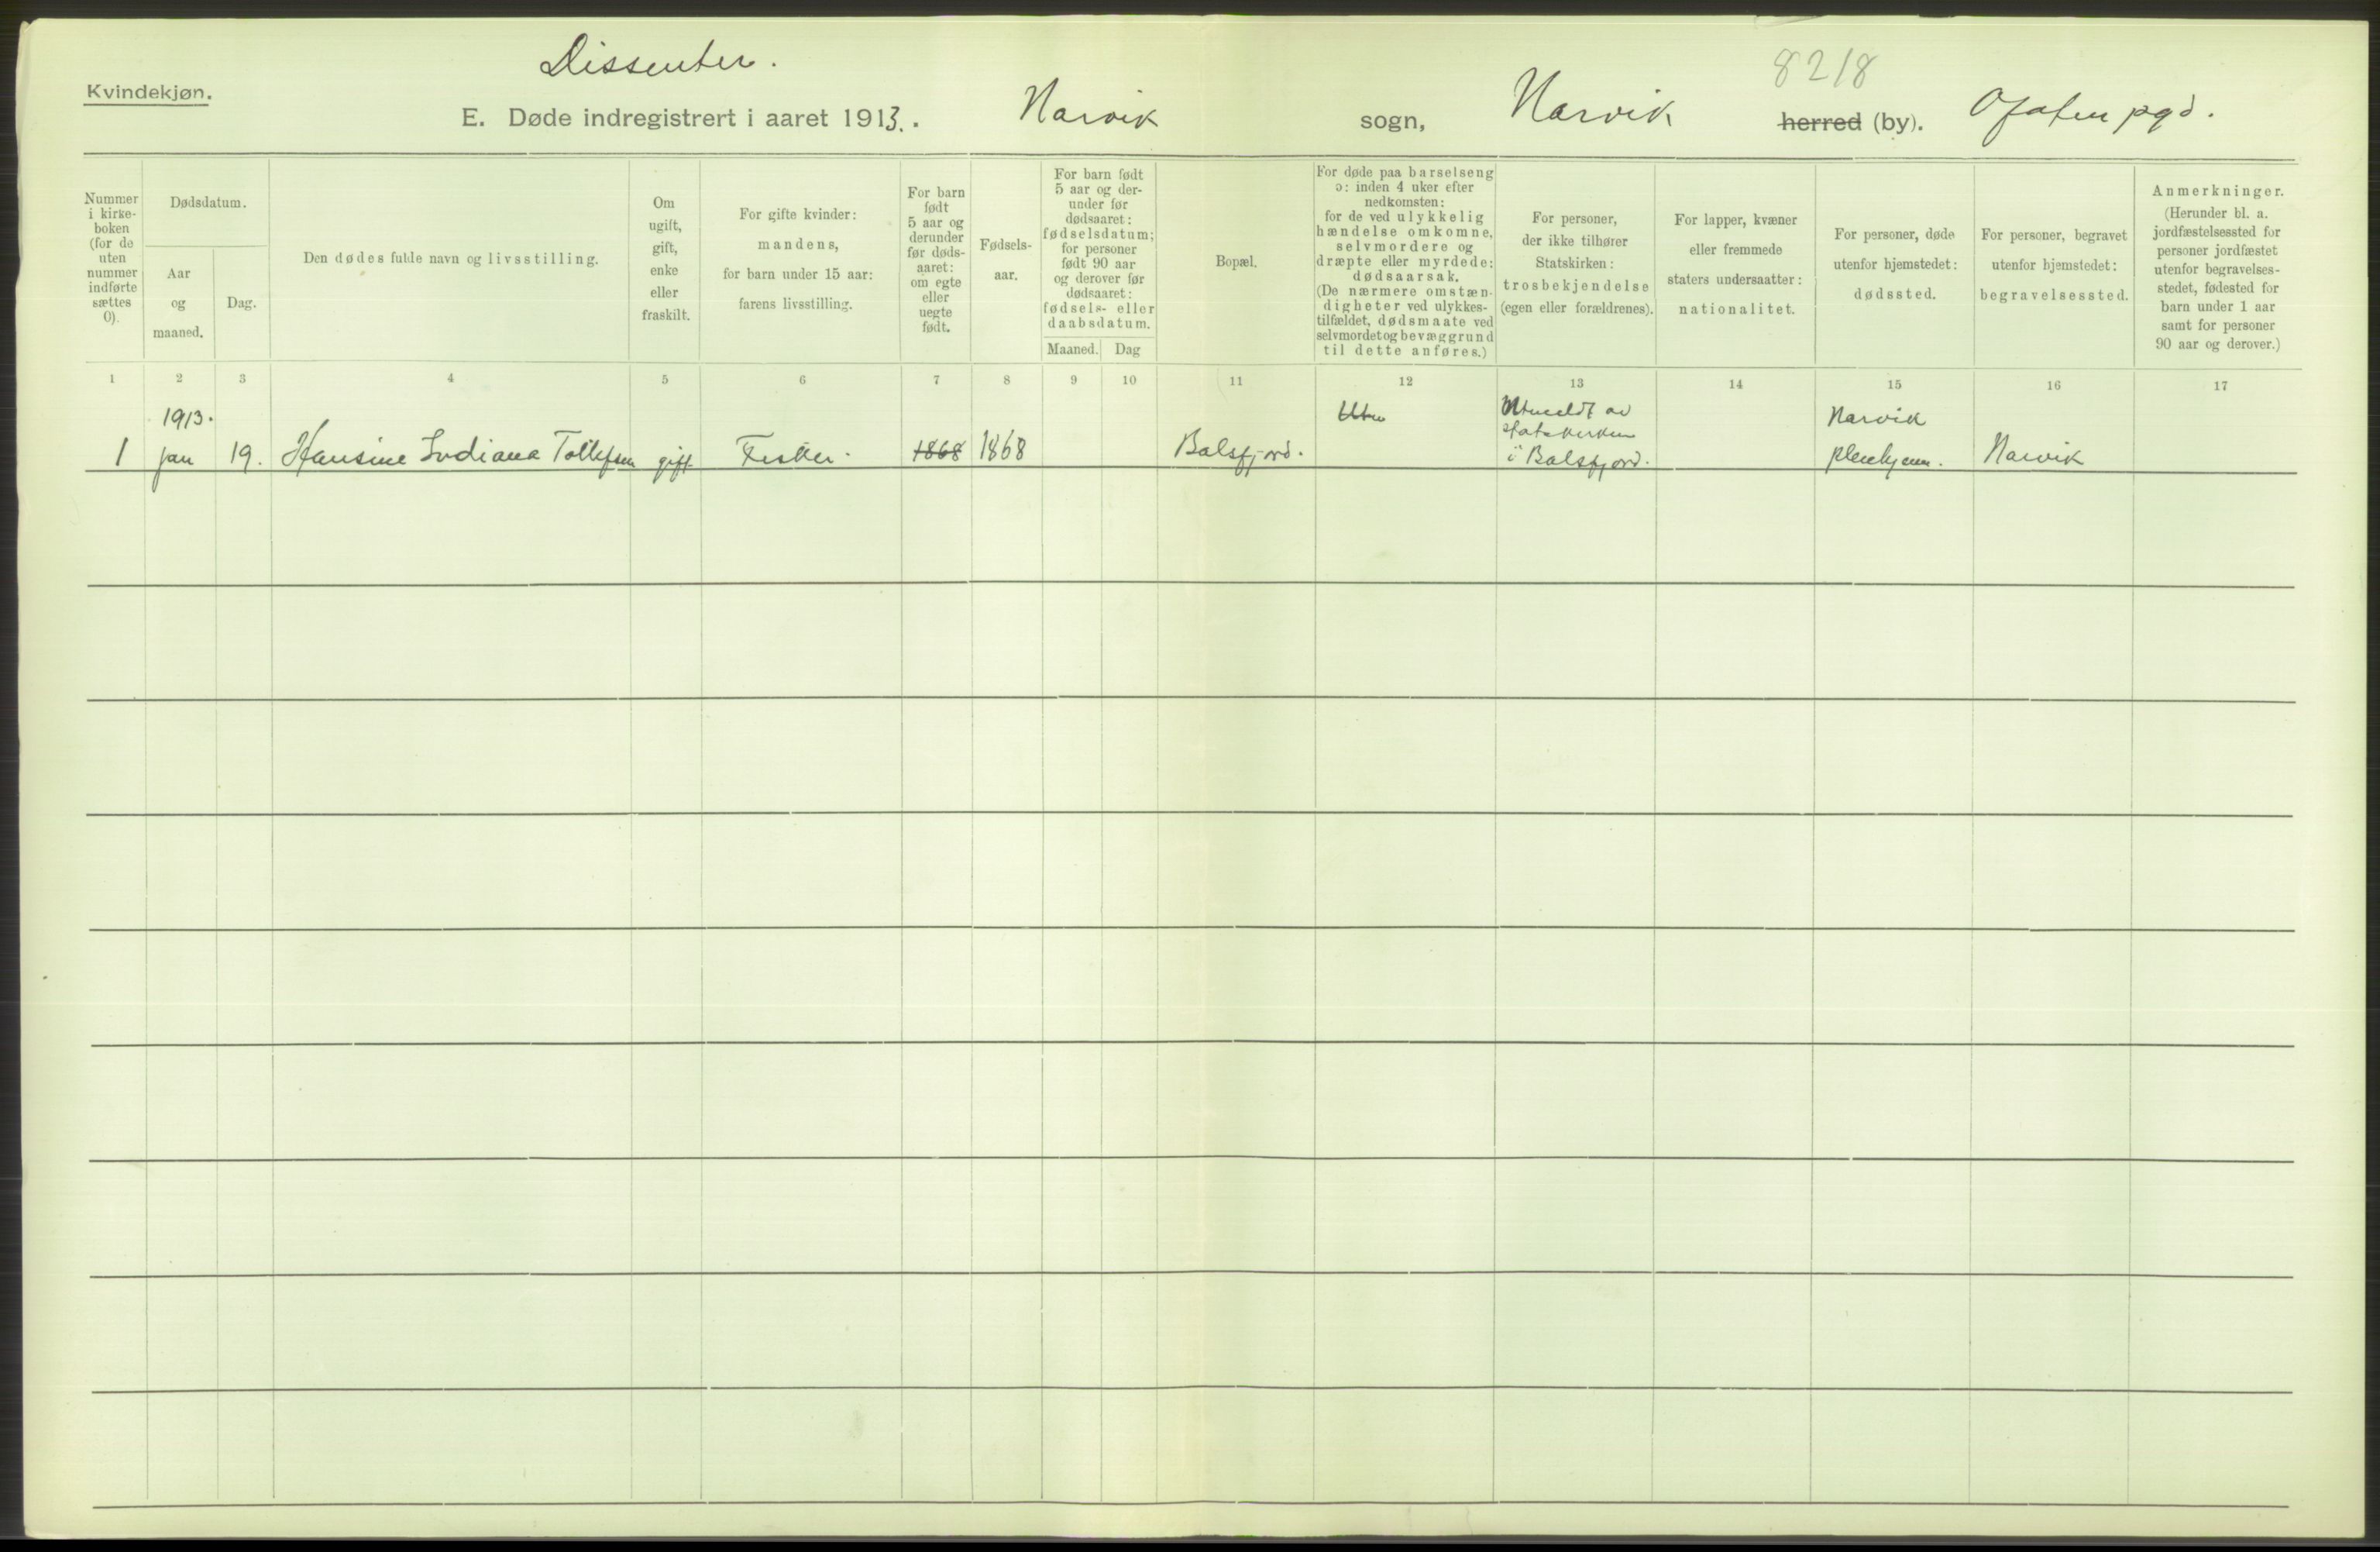 Dissenter.
8218
Kvindekjøn.
E. Døde indregistrert i aaret 1913. . Narvik sogn, Narvik herred (by). Ofoten pgd.
Nummer
i kirke-
boken
(for de
uten
nummer
indførte
sættes
0).
Dødsdatum.
Aar
og
maaned.
Dag.
Den dødes fulde navn og livsstilling.
Om
ugift,
gift,
enke
eller
fraskilt.
For gifte kvinder:
mandens,
for barn under 15 aar:
farens livsstilling.
For barn
født
5 aar og
derunder
før døds-
aaret:
om egte
eller
uegte
født.
Fødsels-
aar.
For barn født
5 aar og der-
under før
dødsaaret:
fødselsdatum;
for personer
født 90 aar
og derover før
dødsaaret:
fødsels- eller
daabsdatum.
Maaned. Dag
Bopæl.
For døde paa barselseng
ɔ: inden 4 uker efter
nedkomsten:
for de ved ulykkelig
hændelse omkomne,
selvmordere og
dræpte eller myrdede:
dødsaarsak.
(De nærmere omstæn-
digheter ved ulykkes-
tilfældet, dødsmaate ved
selvmordet og bevæggrund
til dette anføres.)
For personer,
der ikke tilhører
Statskirken:
trosbekjendelse
(egen eller forældrenes).
For lapper, kvæner
eller fremmede
staters undersaatter:
nationalitet.
For personer, døde
utenfor hjemstedet:
dødssted.
For personer, begravet
utenfor hjemstedet:
begravelsessted.
Anmerkninger.
(Herunder bl. a.
jordfæstelsessted for
personer jordfæstet
utenfor begravelses-
stedet, fødested for
barn under 1 aar
samt for personer
90 aar og derover.)
1 2 3 4 5 6 7 8 9 10 11 12 13 14 15 16 17
1913. Utmeldt av Narvik
statskirken
1 jan 19. Hansine Indiana Tollefsen gift Fisker. 1868 1868 Balsfjord. i Balsfjord. pleiehjem. Narvik